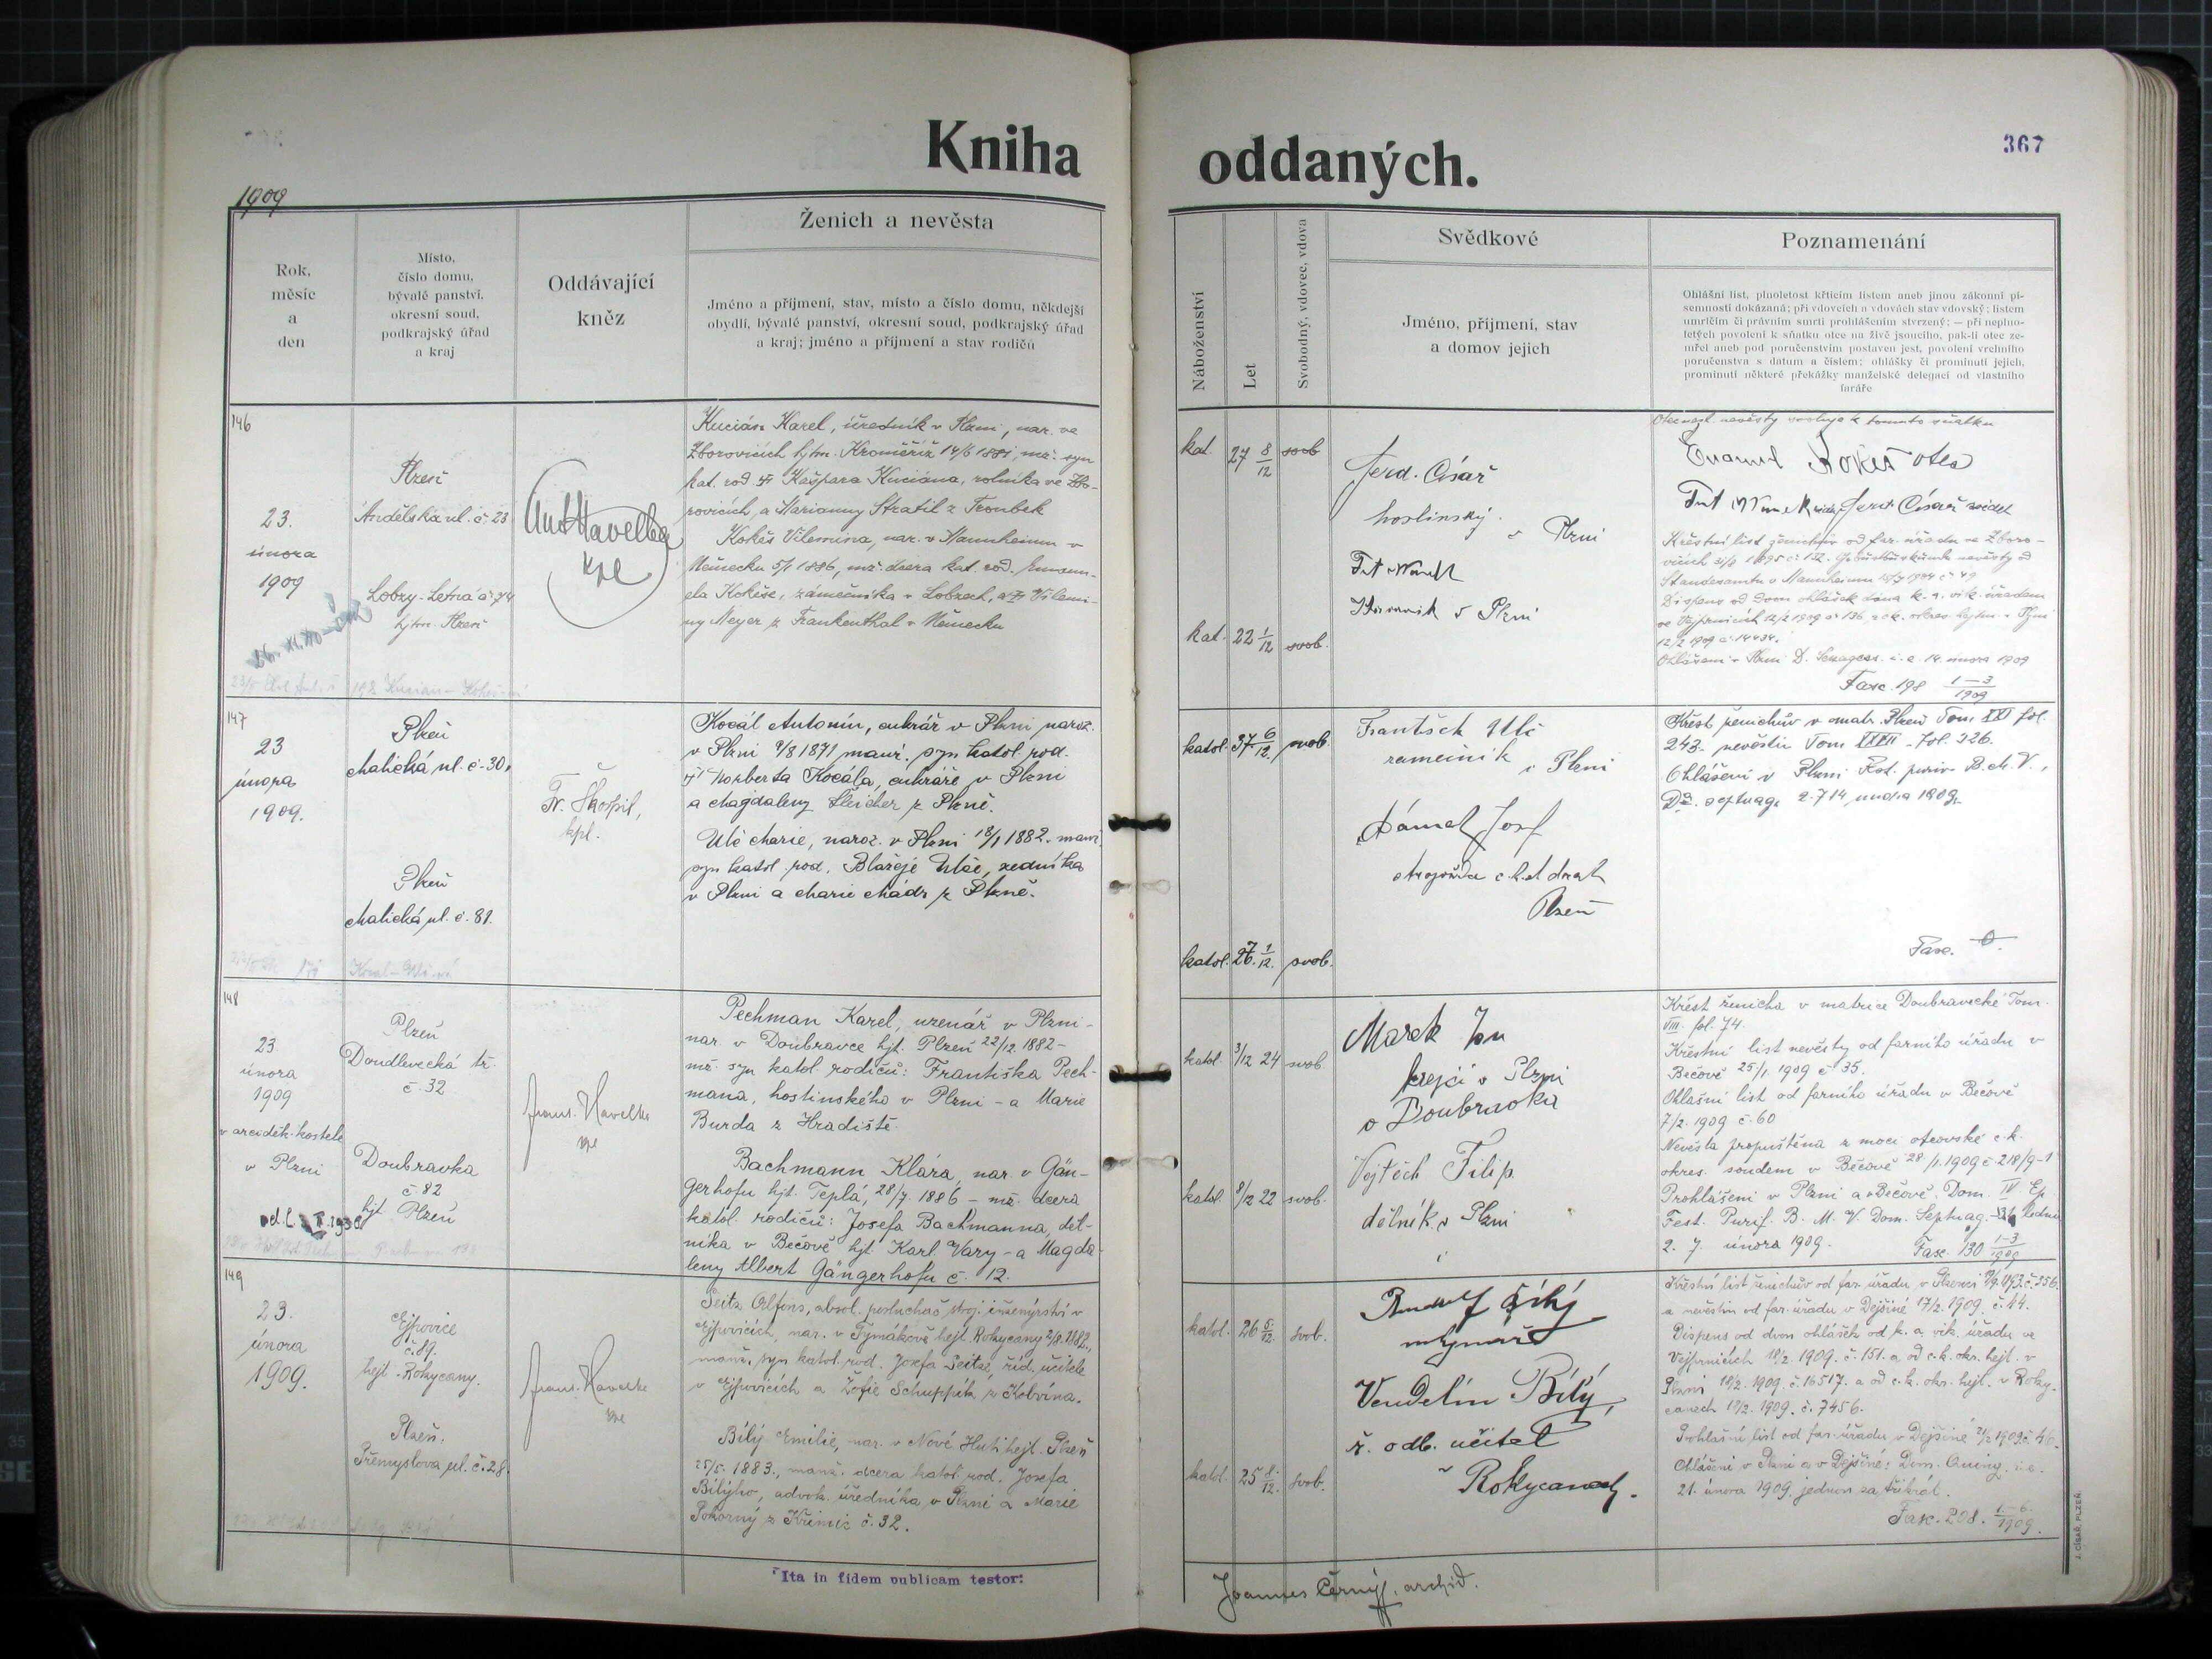 Kniha oddaných.
367
1909
Rok,
měsíc
a
den
Místo,
číslo domu,
bývalé panství,
okresní soud,
podkrajský úřad
a kraj
Oddávající
kněz
Ženich a nevěsta
Jméno a příjmení, stav, místo a číslo domu, někdejší
obydlí, bývalé panství, okresní soud, podkrajský úřad
a kraj; jméno a příjmení a stav rodičů
Náboženství
Let
Svobodný, vdovec, vdova
Svědkové
Jméno, příjmení, stav
a domov jejich
Poznamenání
Ohlašní list, plnoletost křticím listem aneb jinou zákonní pí-
semností dokázaná; při vdovcích a vdovách stav vdovský; listem
umrlčím či právním smrti prohlášením stvrzený; — při neplno-
letých povolení k sňatku otce na živě jsoucího, pak-li otec ze-
mřel aneb pod poručenstvím postaven jest, povolení vrchního
poručenstva s datum a číslem; ohlášky či prominutí jejich,
prominutí některé překážky manželské delegací od vlastního
faráře
146
23.
února
1909
Plzeň
Andělská ul. č. 23
Lobzy-Letná č. 74
hjtm. Plzeň
Ant Havelka
kpl
Kucián Karel, úředník v Plzni, nar. ve
Zborovicích hjtm. Kroměříž 14/6 1881, mž. syn
kat. rod. † Kašpara Kuciána, rolníka ve Zbo-
rovicích, a Marianny Stratil z Troubek
Kokěš Vilemína, nar. v Mannheimu v
Německu 5/1 1886, mž. dcera kat. rod. Emanu-
ela Kokěše, zámečníka v Lobzech, a † Vilemí-
ny Meyer z Frankenthal v Německu
kat. 27 8/12 svob
kat. 22 1/12 svob.
Ferd. Císař
hostinský v Plzni
v Plzni
Otec nezl. nevěsty svoluje k tomuto sňatku
Emanuel Kokěš otec
Ferd. Císař svědek
Křestní list ženichův od far. úřadu ve Zboro-
vicích
Standesamtu v Mannheimu
12/2 1909 č. 14434.
Ohlášeni v Plzni D. Sexages. i. e. 14. února 1909
Fasc. 198 1–3/1909
147
23
února
1909.
Plzeň
Malická ul. č. 30.
Plzeň
Malická ul. č. 81.
Fr. Škorpil,
kpl.
Kocál Antonín, cukrář v Plzni naroz.
v Plzni 9/8 1871 manž. syn katol. rod.
† Norberta Kocála, cukráře v Plzni
a Magdaleny Šleicher z Plzně.
Ulč Marie, naroz. v Plzni 18/1 1882. manž.
syn katol. rod. Blažeje Ulče, zedníka
v Plzni a Marie Mádr z Plzně.
katol. 37 6/12. svob.
katol. 27. 1/12. svob.
František Ulč
řemeník v Plzni
Josef
Plzeň
Křest ženichův v matr. Plzeň Tom XXI fol.
243. nevěstin Tom XXVII. fol. 326.
Ohlášeni v Plzni Fest. puriv. B. M. V.,
Dom. septuag. 2. 7 14 února 1909.
Fasc. 0.
148
23
února
1909
v arciděk. kostele
v Plzni
Plzeň
Doudlevecká tř.
č. 32
Doubravka
č. 82
hjt. Plzeň
Frant. Havelka
kpl
Pechman Karel, uzenář v Plzni -
nar v Doubravce hjt. Plzeň 22/12. 1882 -
mž. syn katol rodičů: Františka Pech-
mana, hostinského v Plzni - a Marie
Burda z Hradiště.
Bachmann Klára, nar. v Gän-
gerhofu hjt. Teplá, 28/7. 1886 - mž. dcera
katol. rodičů: Josefa Bachmanna, děl-
níka v Bečově hjt. Karl. Vary - a Magda-
leny Albert Gängerhofu č. 12.
katol. 3/12 24 svob.
katol. 8/12 22 svob.
Marek Jan
krejčí v Plzni
Vojtěch Filip
dělník v Plzni
Křest ženicha v matrice Doubravecké Tom.
VIII. fol. 74.
Křestní list nevěsty od farního úřadu v
Bečově 25/1. 1909 č 35.
Ohlašní list od farního úřadu v Bečově
7/2. 1909 č. 60
Nevěsta propuštěna z moci otcovské c. k.
okres. soudem v Bečově 28/1. 1909 č. 218/9-1
Prohlášeni v Plzni a v Bečově. Dom. IV Ep
Fest. Purif. B. M. V. Dom. Septuag. - 31 ledna
2. 7. února 1909.
Fasc. 130 1–3/1909
149
23.
února
1909.
Ejpovice
č. 89.
hejt. Rokycany.
Plzeň,
Přemyslova ul. č. 28.
Frant. Havelka
kpl
Seitz Alfons, absol. posluchač stroj. inženýrství v
Ejpovicích, nar. v Tymákově hejt. Rokycany 2/9. 1882.,
manž. syn katol. rod. Josefa Seitze, říd. učitele
v Ejpovicích a Žofie Schuppík z Kobrína.
Bílý Emilie, nar. v Nové Huti hejt. Plzeň
25/5. 1883., manž. dcera katol. rod. Josefa
Bílýho, advok. úředníka v Plzni a Marie
Pokorný z Křimic č. 32.
katol. 26 5/12. svob.
katol. 25 8/12. svob.
mlynář
Vendelín Bílý,
ř. odb. učitel
v Rokycanech.
a nevěstin od far. úřadu v Dejšině 17/2. 1909. č. 44.
Dispens od dvou ohlášek od k. a. vik. úřadu ve
Vejprnicích 18/2. 1909. č. 151. a od c. k. okr. hejt. v
Plzni 18/2. 1909. č. 16517. a od c. k. okr. hejt. v Roky-
canech 19/2. 1909. č. 7456.
Prohlašní list od far. úřadu v Dejšině 21/2 1909. č. 46.
Ohlášeni v Plzni a v Dejšině: Dom. Quinq. i. e.
21. února 1909. jednou za třikrát.
Fasc. 208. 1–6./1909.
Ita in fidem publicam testor:
Joannes Černý, archid.
J. CÍSAŘ, PLZEŇ.